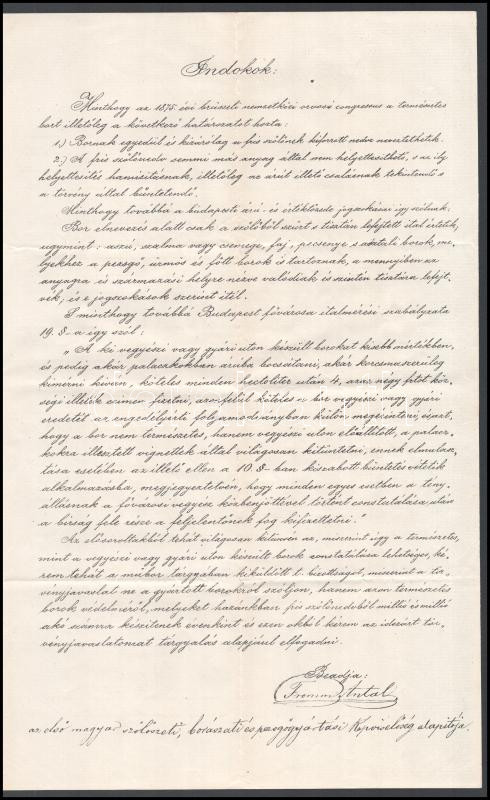 Indokok:
Minthogy az 1875 évi brüsseli nemzetközi orvosi congressus a természetes
bort illetőleg a következő határozatot hozta:
1.) Bornak egyedül és kizárólag a fris szőlőnek kiforrott nedve neveztethetik.
2.) A fris szőlőnedv semmi más anyag által nem helyettesíthető, s az ily
helyettesítés hamisításnak, illetőleg az árút illető csalásnak tekintendő s
a törvény által büntetendő.
Minthogy továbbá a budapesti árú- és értéktőzsde jogszokásai így szólnak:
Bor elnevezés alatt csak a szőlőből szűrt s tisztán lefejtett ital értetik,
ugymint: aszú, szalma vagy csemege, faj, pecsenye s asztali borok, me-
lyekhez a pezsgő, ürmös és főtt borok is tartoznak, a mennyiben az
anyagra és származási helyre nézve valódiak és szintén tisztára lefejt-
vék; is e jogszokások szerint itél.
S minthogy továbbá Budapest fővárosa italmérési szabályzata
19. §-a így szól:
„A ki vegyészi vagy gyári uton készült borokat kisebb mértékben,
és pedig akár palaczkokban árúba bocsátani, akár korcsmaszerüleg
kimérni kíván, köteles minden hectoliter után 4, azaz négy frtot köz-
ségi illeték czímén fizetni, azonfelül köteles a bor vegyészi vagy gyári
eredetét az engedélyérti folyamodványban külön megemliteni, s azt,
hogy a bor nem természetes, hanem vegyészi uton előállított, a palacz-
kokra illesztett vignetták által világosan kitüntetni, ennek elmulasz-
tása esetében az illető ellen a 10. §-ban kiszabott büntetés vétetik
alkalmazásba, megjegyeztetvén, hogy minden egyes esetben a tény-
állásnak a fővárosi vegyész közbenjöttével történt constatálása után
a birság fele része a feljelentőnek fog kifizettetni."
Az elősoroltakból tehát világosan kitünvén az, miszerint úgy a természetes,
mint a vegyészi vagy gyári uton készült borok constatálása lehetséges, ké-
rem tehát a műbor tárgyában kiküldött t. bizottságot, miszerint a tör-
vényjavaslat ne a gyártott borokról szóljon, hanem azon természetes
borok védelméről, melyeket hazánkban fris szőlőnedvből millió és millió
akó számra készitenek évenkint és ezen okból kérem az idezárt tör-
vényjavaslatomat tárgyalás alapjául elfogadni.
Beadja:
Fromm Antal
az első magyar szőlőszeti, borászati és pezsgőgyártási Képviselőség alapitója.